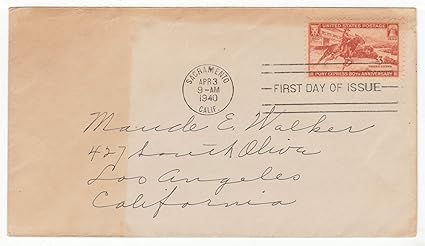 UNITED STATES POSTAGE
3¢
PONY EXPRESS 80TH ANNIVERSARY
SACRAMENTO
APR 3
9-AM
1940
CALIF.
FIRST DAY OF ISSUE
Maude E. Walker
427 South Oliva
Los Angeles
California